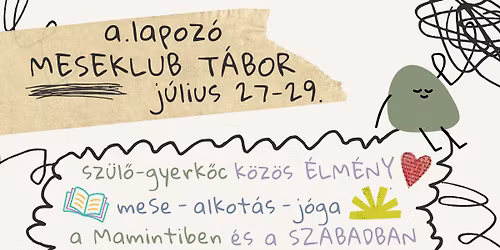 a.lapozó
MESEKLUB TÁBOR
július 27-29.
szülő-gyerkőc közös ÉLMÉNY
mese - alkotás - jóga
a Mamintiben és a SZABADBAN